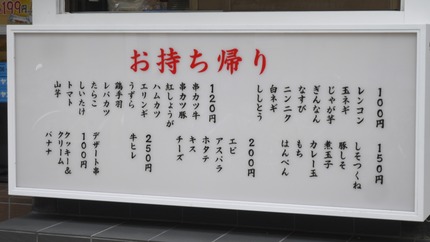 199円
お持ち帰り
100円
レンコン
玉ネギ
じゃが芋
ぎんなん
なすび
ニンニク
白ネギ
ししとう
120円
串カツ牛
串カツ豚
紅しょうが
ハムカツ
エリンギ
うずら
鶏手羽
レバカツ
たらこ
しいたけ
トマト
山芋
150円
しそつくね
豚しそ
煮玉子
カレー玉
もち
はんぺん
200円
エビ
アスパラ
ホタテ
キス
チーズ
250円
牛ヒレ
デザート串
100円
クッキー&
クリーム
バナナ